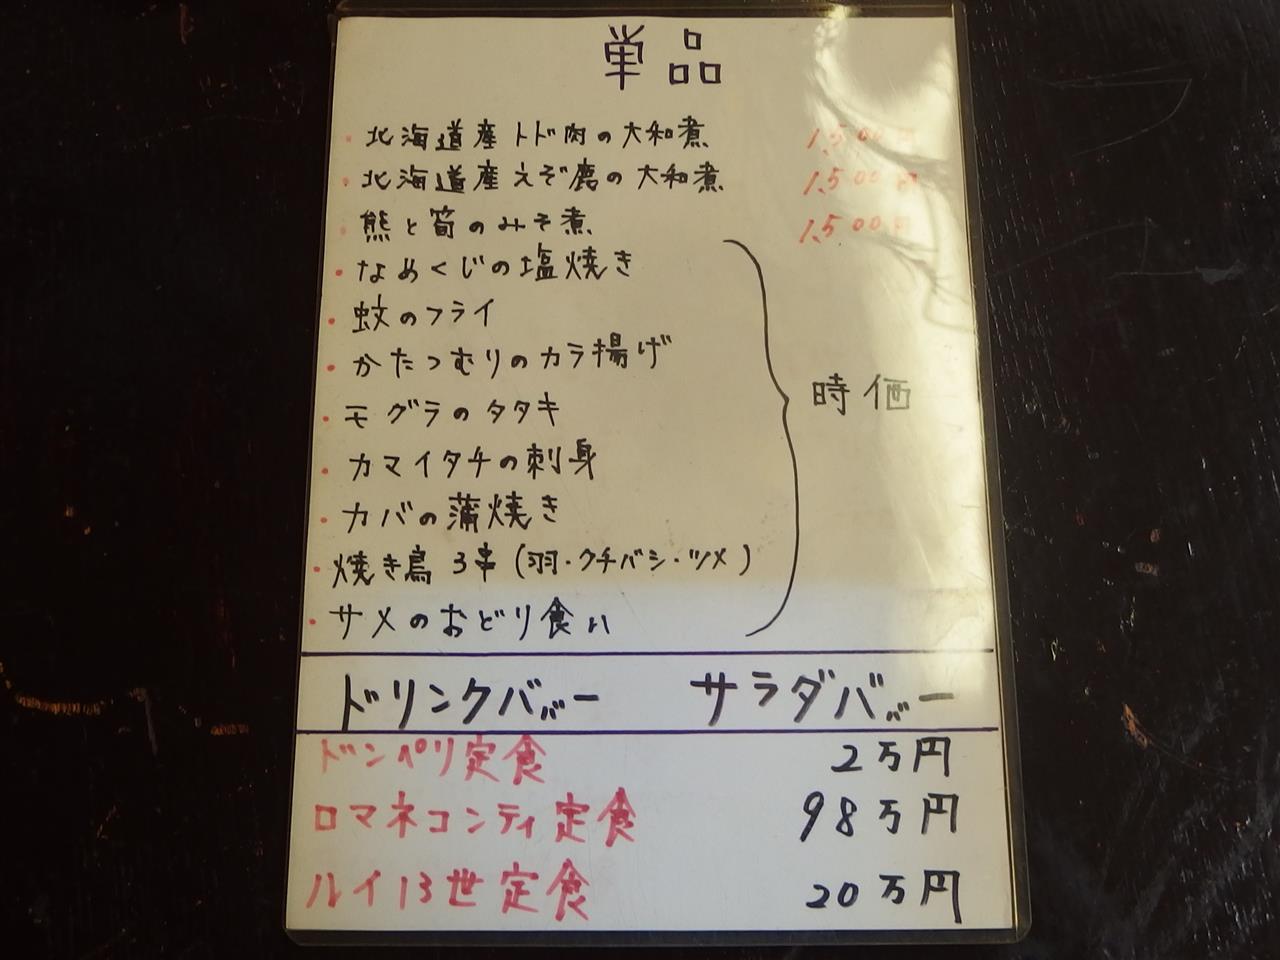 単品
・北海道産トド肉の大和煮 1,500円
・北海道産えぞ鹿の大和煮 1,500円
・熊と筍のみそ煮 1,500円
・なめくじの塩焼き
・蚊のフライ
・かたつむりのカラ揚げ
・モグラのタタキ
・カマイタチの刺身
・カバの蒲焼き
・焼き鳥 3串(羽・クチバシ・ツメ)
・サメのおどり食い
時価
ドリンクバッー サラダバッー
ドンペリ定食 2万円
ロマネコンティ定食 98万円
ルイ13世定食 20万円